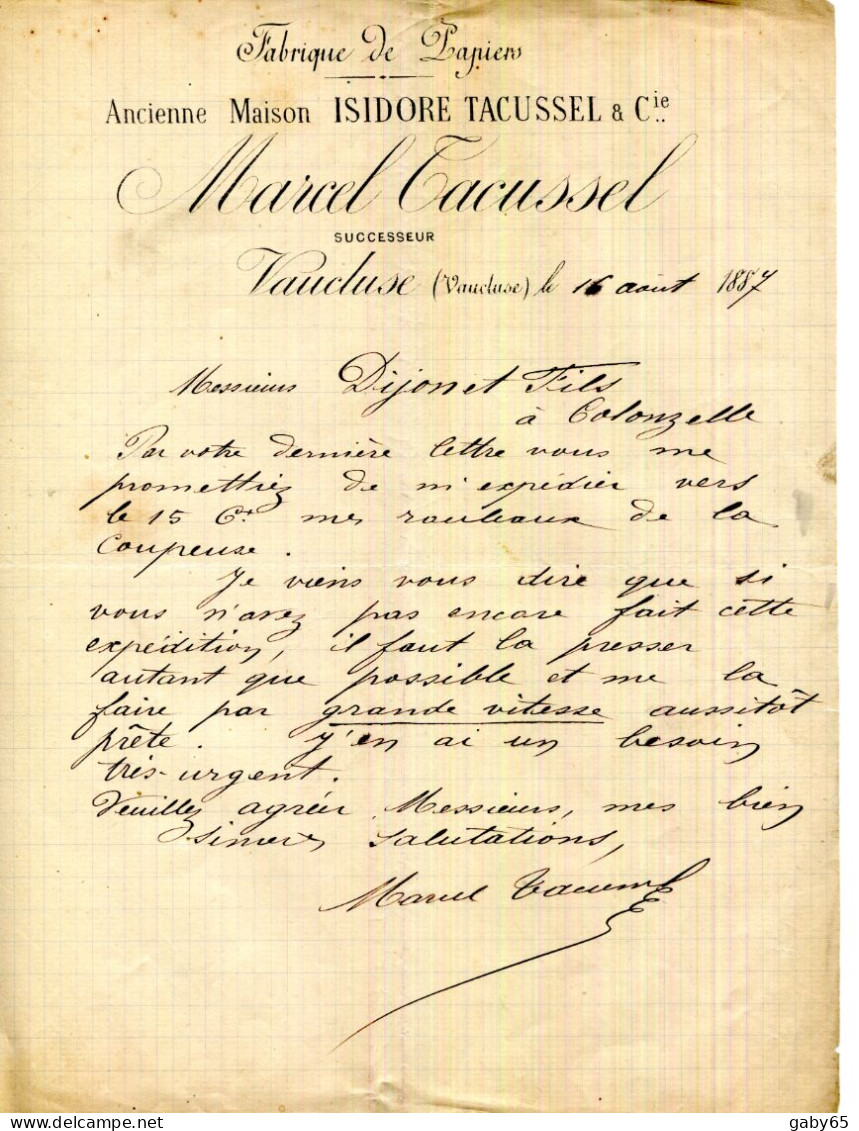 Fabrique de Papiers
Ancienne Maison ISIDORE TACUSSEL & Cie
Marcel Tacussel
SUCCESSEUR
Vaucluse (Vaucluse) le 16 août 1887
Messieurs Dijon et Fils
à Colonzelle
Par votre dernière lettre vous me
promettiez de m'expédier vers
le 15 Ct mes rouleaux de la
Coupeuse.
Je viens vous dire que si
vous n'avez pas encore fait cette
expédition, il faut la presser
autant que possible et me la
faire par grande vitesse aussitôt
prête. J'en ai un besoin
très-urgent.
Veuillez agréer Messieurs, mes bien
sincères salutations,
Marcel Tacussel
gaby65